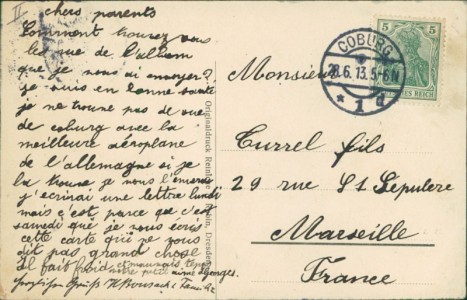 II
chers parents
Comment trouvez vous
les vue de l'album
que je vous ai envoyer?
je suis en bonne santé
je ne trouve pas de vue
de coburg avec la
meilleure aéroplane
de l'allemagne si je
la trouve je vous l'enverrai
j'écrirai une lettre lundi
mais c'est parce que c'est
samedi que je vous écris
cette carte qui ne vous
dit pas grand chose
Il fait froid et mauvais temps
votre petit aimé Georges.
Herzlichen Gruß
Originaldruck Reinicke & Rubin, Dresden
COBURG
28.6.13.5-6N
* 1 d
5 5
DEUTSCHES REICH
Monsieur
Currel fils
29 rue St Sépulcre
Marseille
France